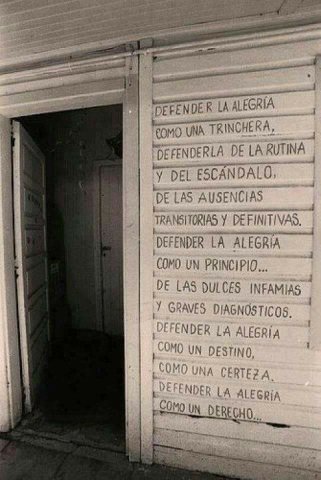 DEFENDER LA ALEGRÍA
COMO UNA TRINCHERA,
DEFENDERLA DE LA RUTINA
Y DEL ESCÁNDALO,
DE LAS AUSENCIAS
TRANSITORIAS Y DEFINITIVAS.
DEFENDER LA ALEGRÍA
COMO UN PRINCIPIO...
DE LAS DULCES INFAMIAS
Y GRAVES DIAGNÓSTICOS.
DEFENDER LA ALEGRÍA
COMO UN DESTINO,
COMO UNA CERTEZA.
DEFENDER LA ALEGRÍA
COMO UN DERECHO...